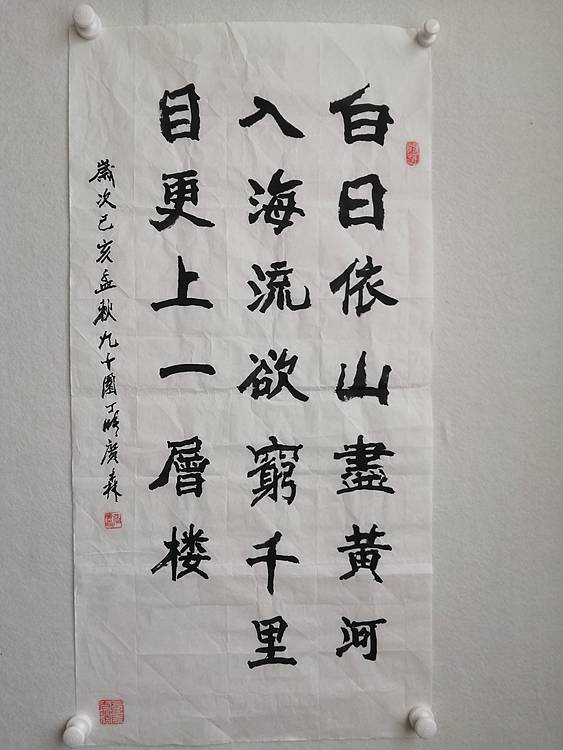 白日依山盡黄河
入海流欲窮千里
目更上一層楼
歲次己亥孟秋九十園丁時慶森